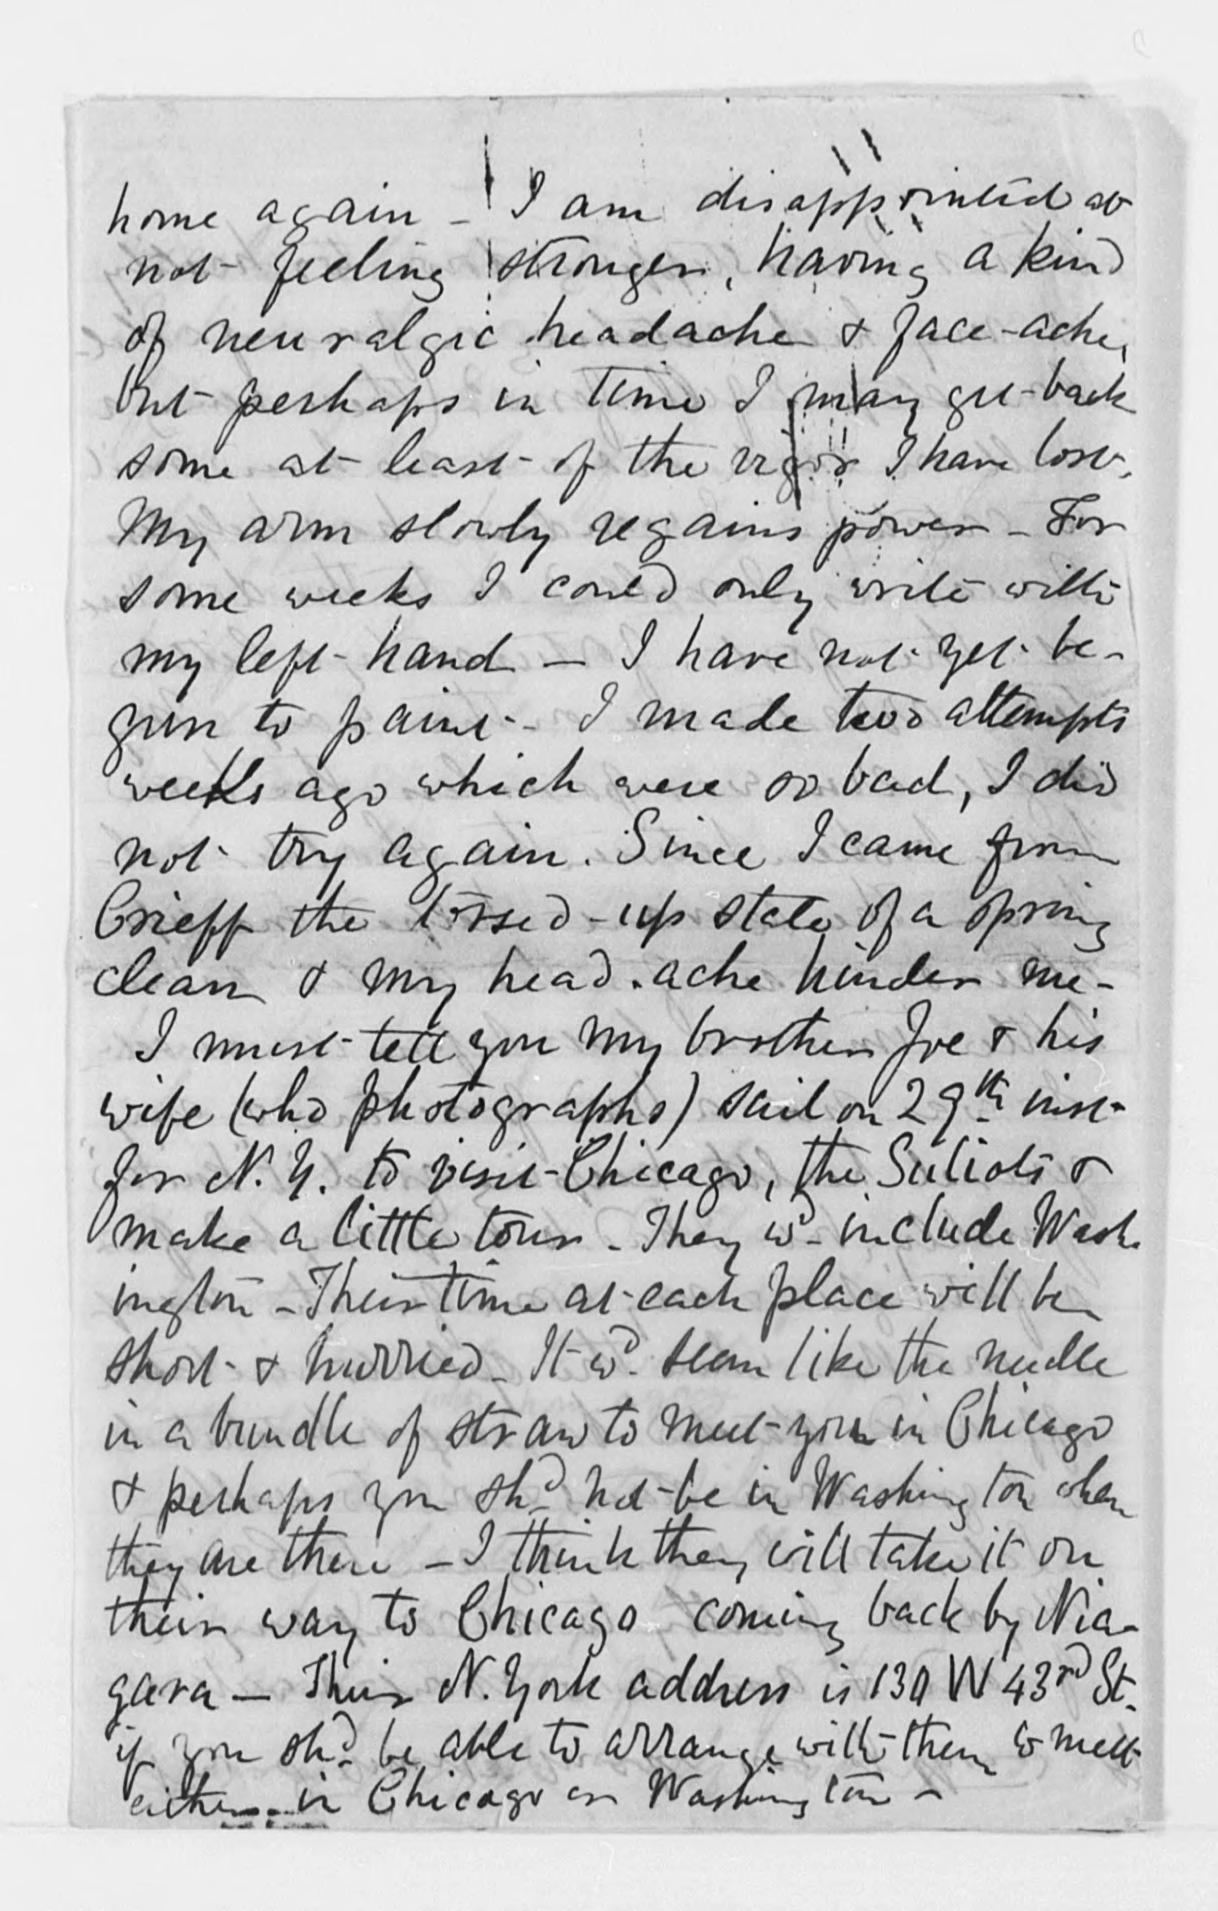 home again - I am disappointed at
not feeling stronger, having a kind
of neuralgic headache & face-ache,
but perhaps in time I may get back
some at least of the vigor I have lost.
My arm slowly regains power - For
some weeks I could only write with
my left hand - I have not yet be-
gun to paint - I made two attempts
weeks ago which were so bad, I did
not try again. Since I came from
Crieff the tossed-up state of a spring
clean & my head-ache hinder me -
I must tell you my brother Joe & his
wife (who photographs) sail on 29th inst
for N.Y. to visit Chicago, the &
make a little tour - They wd. include Wash-
ington - Their time at each place will be
short & hurried - It wd. seem like the needle
in a bundle of straw to meet you in Chicago
& perhaps you shd. not be in Washington when
they are there - I think they will take it on
their way to Chicago coming back by Nia-
gara - Their N. York address is W 43rd St.
if you shd. be able to arrange with them to meet
either in Chicago or Washington -